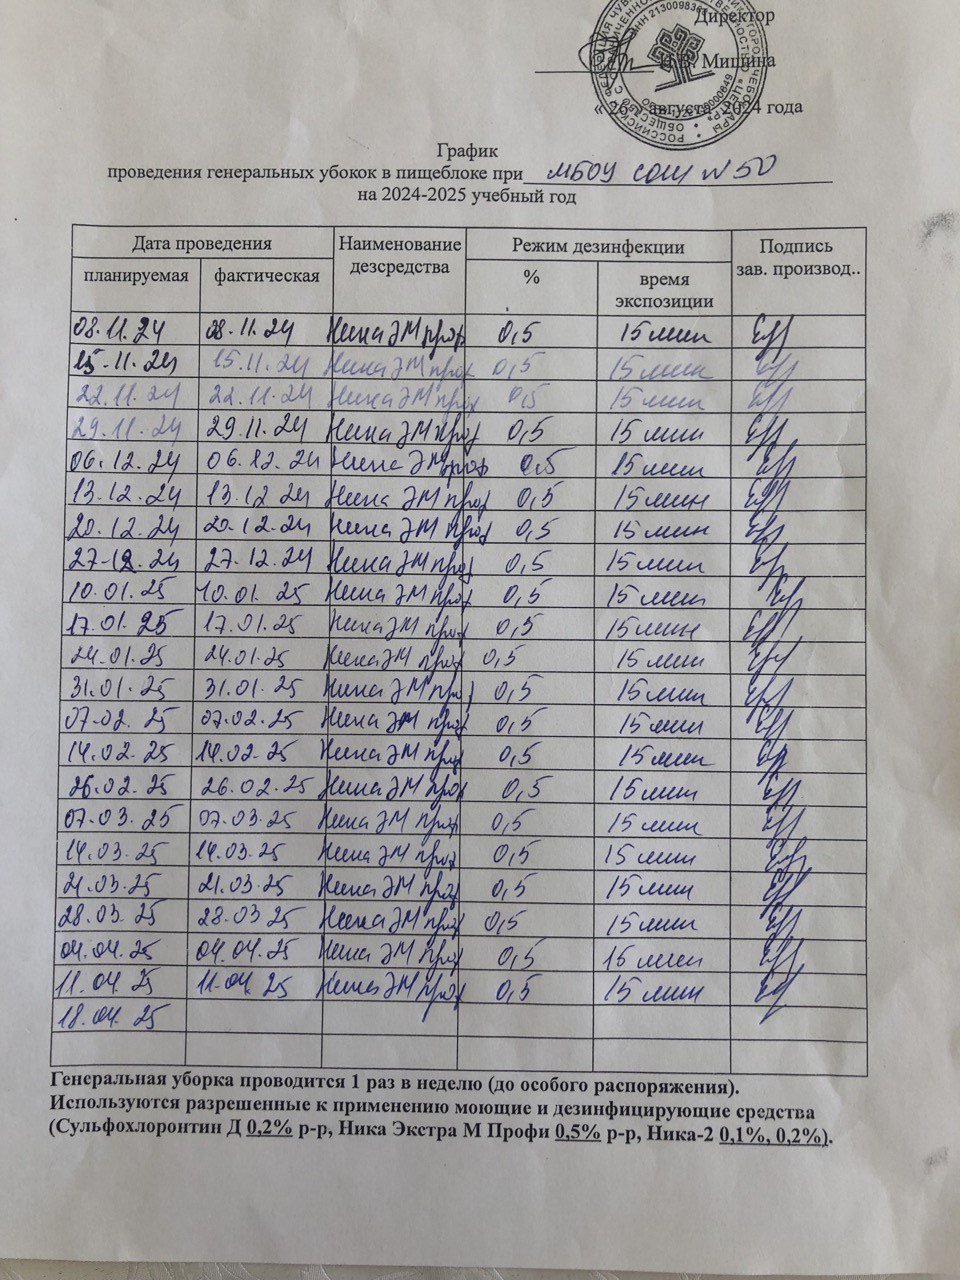 Директор
Мишина
августа 2024 года
График
проведения генеральных убокок в пищеблоке при МБОУ СОШ №50
на 2024-2025 учебный год
Дата проведения Наименование дезсредства Режим дезинфекции Подпись зав. производ..
планируемая фактическая % время экспозиции
08.11.24 08.11.24 Ника ЭМ проф 0,5 15 мин
15.11.24 15.11.24 Ника ЭМ проф 0,5 15 мин
22.11.24 22.11.24 Ника ЭМ проф 0,5 15 мин
29.11.24 29.11.24 Ника ЭМ проф 0,5 15 мин
06.12.24 06.12.24 Ника ЭМ проф 0,5 15 мин
13.12.24 13.12 24 Ника ЭМ проф 0,5 15 мин
20.12.24 20.12.24 Ника ЭМ проф 0,5 15 мин
27.12.24 27.12.24 Ника ЭМ проф 0,5 15 мин
10.01.25 10.01.25 Ника ЭМ проф 0,5 15 мин
17.01.25 17.01.25 Ника ЭМ проф 0,5 15 мин
24.01.25 24.01.25 Ника ЭМ проф 0,5 15 мин
31.01.25 31.01.25 Ника ЭМ проф 0,5 15 мин
07.02.25 07.02.25 Ника ЭМ проф 0,5 15 мин
14.02.25 14.02.25 Ника ЭМ проф 0,5 15 мин
26.02.25 26.02.25 Ника ЭМ проф 0,5 15 мин
07.03.25 07.03.25 Ника ЭМ проф 0,5 15 мин
14.03.25 14.03.25 Ника ЭМ проф 0,5 15 мин
21.03.25 21.03.25 Ника ЭМ проф 0,5 15 мин
28.03.25 28.03 25 Ника ЭМ проф 0,5 15 мин
04.04.25 04.04.25 Ника ЭМ проф 0,5 15 мин
11.04.25 11.04.25 Ника ЭМ проф 0,5 15 мин
18.04.25
Генеральная уборка проводится 1 раз в неделю (до особого распоряжения).
Используются разрешенные к применению моющие и дезинфицирующие средства
(Сульфохлоронтин Д 0,2% р-р, Ника Экстра М Профи 0,5% р-р, Ника-2 0,1%, 0,2%).